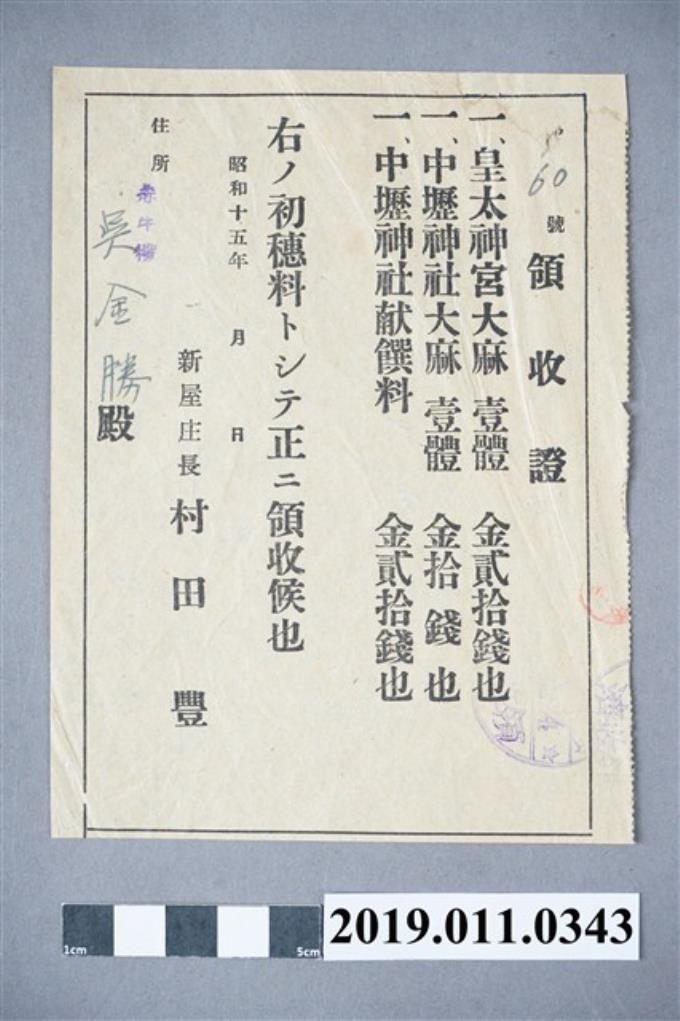 60 號
領收證
一、皇太神宮大麻 壹體 金貳拾錢也
一、中壢神社大麻 壹體 金拾錢也
一、中壢神社献饌料 金貳拾錢也
右ノ初穗料トシテ正ニ領收候也
昭和十五年 月 日
新屋庄長 村田豐
住所
吳金勝殿
領
1cm
5cm
2019.011.0343